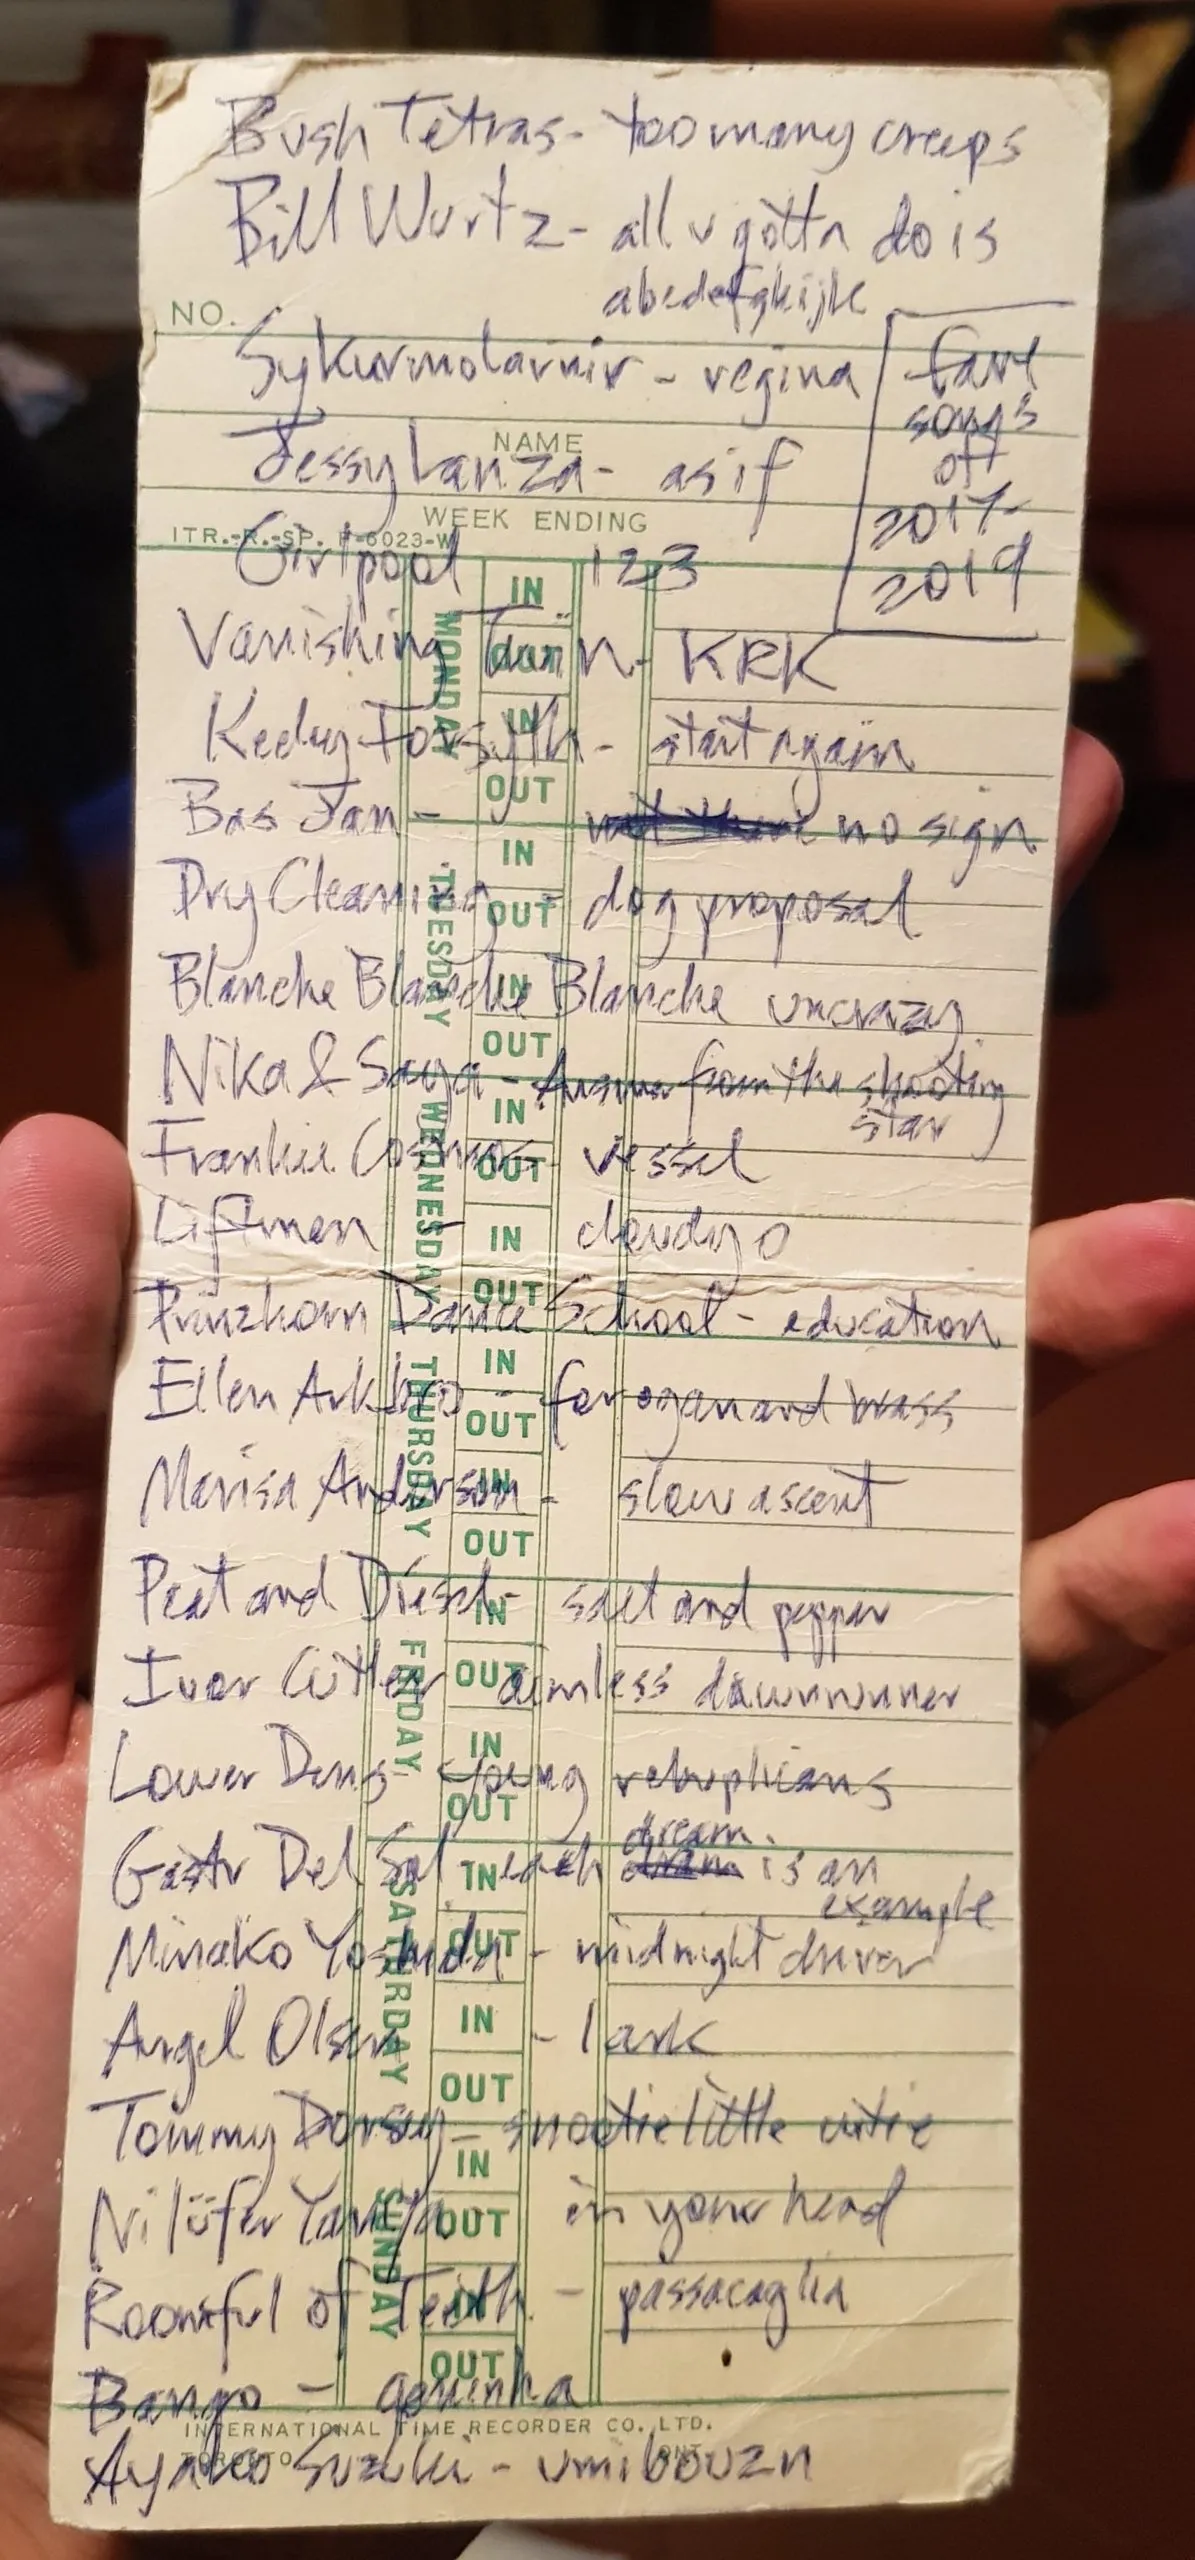 Bush Tetras - too many creeps
Bill Wurtz - all u gotta do is
abcdefghijk
NO.
Sykurmolarnir - regina
fave
songs
of
2017-
2019
NAME
Jessy Lanza - as if
WEEK ENDING
ITR.-R.-SP. F-6023-W
Girlpool 123
Vanishing Twin - KRK
Keeley Forsyth - start again
Bas Jan - no sign
Dry Cleaning - dog proposal
Blanche Blanche Blanche uncrazy
Nika & Saya - Answer from the shooting
star
Frankie Cosmos - vessel
Liftmen - cloudy o
Prinzhorn Dance School - education
Ellen Arkbro - for ogan and brass
Marisa Anderson - slow ascent
Peat and Diesel - salt and pepper
Ivor Cutler aimless dawnrunner
Lower Dens - young rebuplicans
dream.
Gastr Del Sol each is an
example
Minako Yoshida - midnight driver
Angel Olsen - lark
Tommy Dorsey - snootie little cutie
Nilüfer Yanya in your head
Roomful of Teeth - passacaglia
Bango - geninha
INTERNATIONAL TIME RECORDER CO. LTD.
TORONTO ONT.
Ayako Suzuki - umibouzu
MONDAY
TUESDAY
WEDNESDAY
THURSDAY
FRIDAY
SATURDAY
SUNDAY
IN
IN
OUT
IN
OUT
IN
OUT
IN
OUT
IN
OUT
IN
OUT
IN
OUT
IN
OUT
IN
OUT
IN
OUT
IN
OUT
IN
OUT
IN
OUT